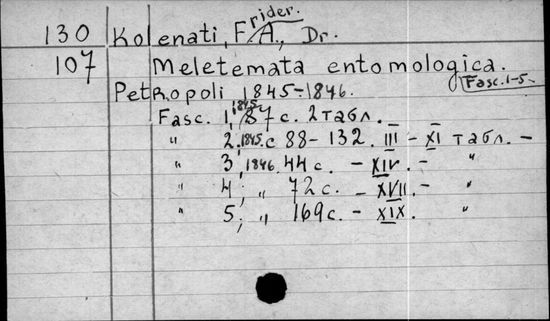 130 Kolenati, F.rider. A., Dr.
107 Meletemata entomologica.
Petropoli 1845-1846. Fasc. 1-5.
Fasc. 1, 1845. 87 с. 2 табл.
" 2. 1845. с 88-132. III - XI табл. -
" 3, 1846. 44 с. - XIV. - "
" 4, " 72 с. - XVII. - "
" 5, " 169 с. - XIX. "